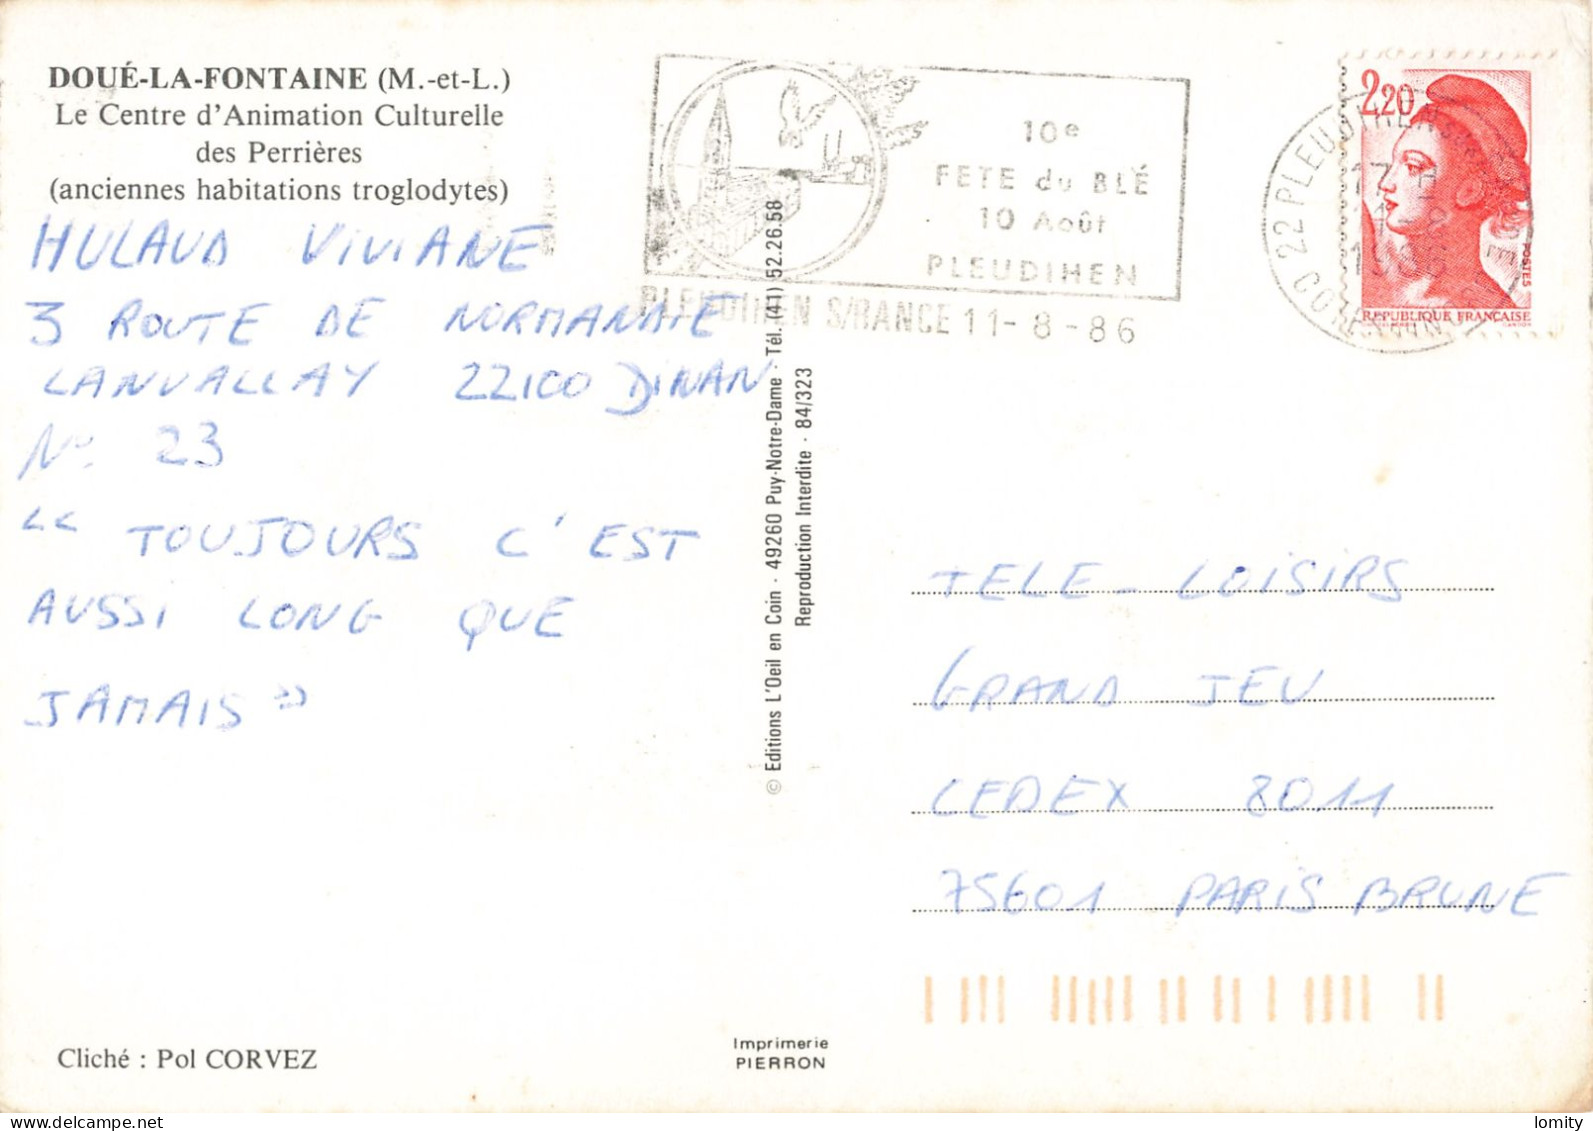 DOUÉ-LA-FONTAINE (M.-et-L.)
Le Centre d'Animation Culturelle
des Perrières
(anciennes habitations troglodytes)
HULAUD VIVIANE
3 ROUTE DE NORMANDIE
LANVALLAY 22100 DINAN
N° 23
"TOUJOURS C'EST
AUSSI LONG QUE
JAMAIS"
Cliché : Pol CORVEZ
© Editions L'Oeil en Coin · 49260 Puy-Notre-Dame · Tél. (41) 52.26.58
Reproduction Interdite · 84/323
Imprimerie
PIERRON
10e
FETE du BLÉ
10 Août
PLEUDIHEN
PLEUDIHEN S/RANCE 11-8-86
22 PLEUDIHEN
17 H
11-8
1986
2,20
POSTES
REPUBLIQUE FRANÇAISE
TELE-LOISIRS
GRAND JEU
CEDEX 8011
75601 PARIS BRUNE
lomity